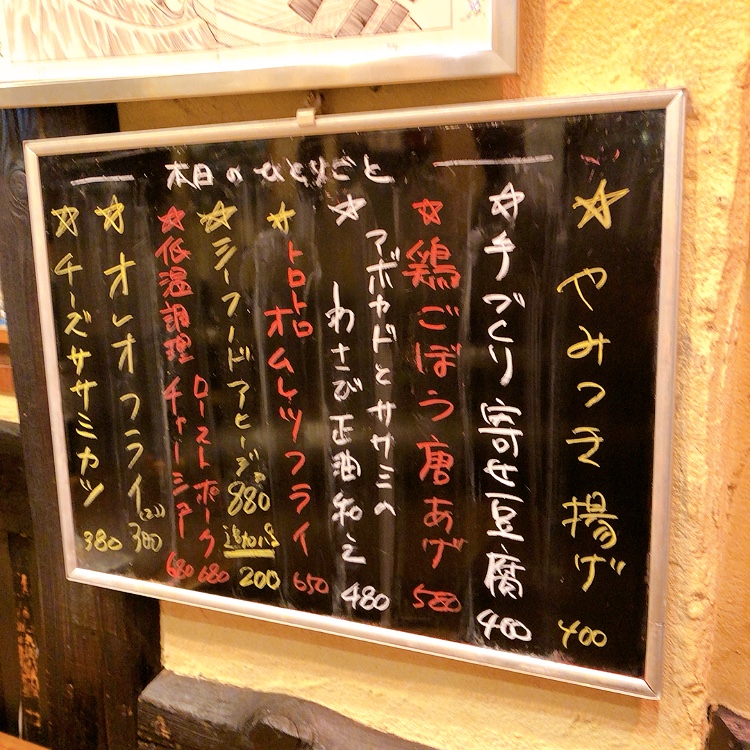 本日のひとりごと
☆やみつき揚げ 400
☆手づくり寄せ豆腐 400
☆鶏ごぼう唐あげ 580
☆アボカドとササミの
わさび正油和え 480
☆トロトロオムレツフライ 650
☆シーフードアヒージョ 880
追加パン 200
☆低温調理
ローストポーク 680
チャーシュー 680
☆オレオフライ(2コ) 300
☆チーズササミカツ 380